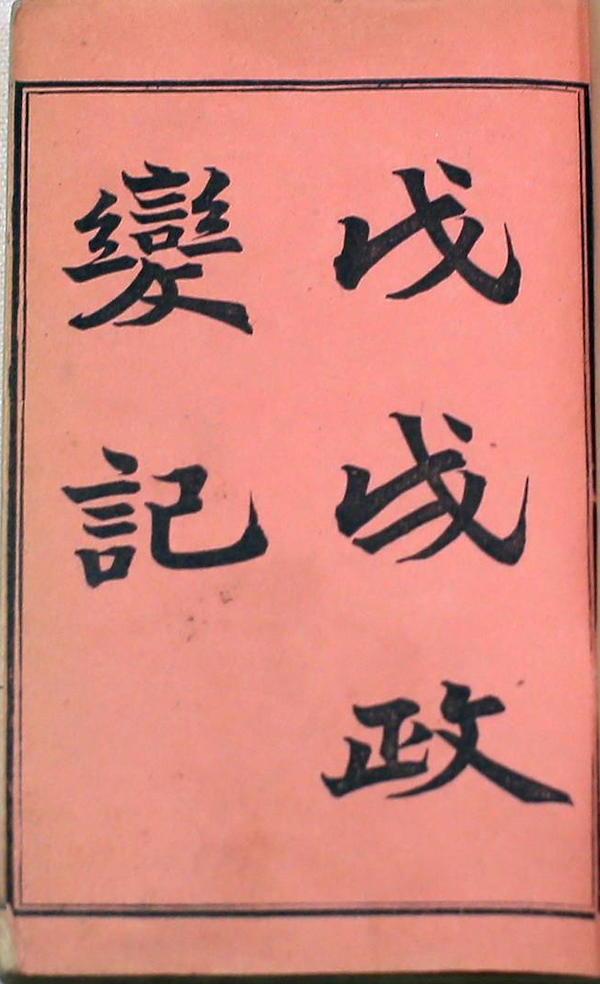 戊戌政
變記